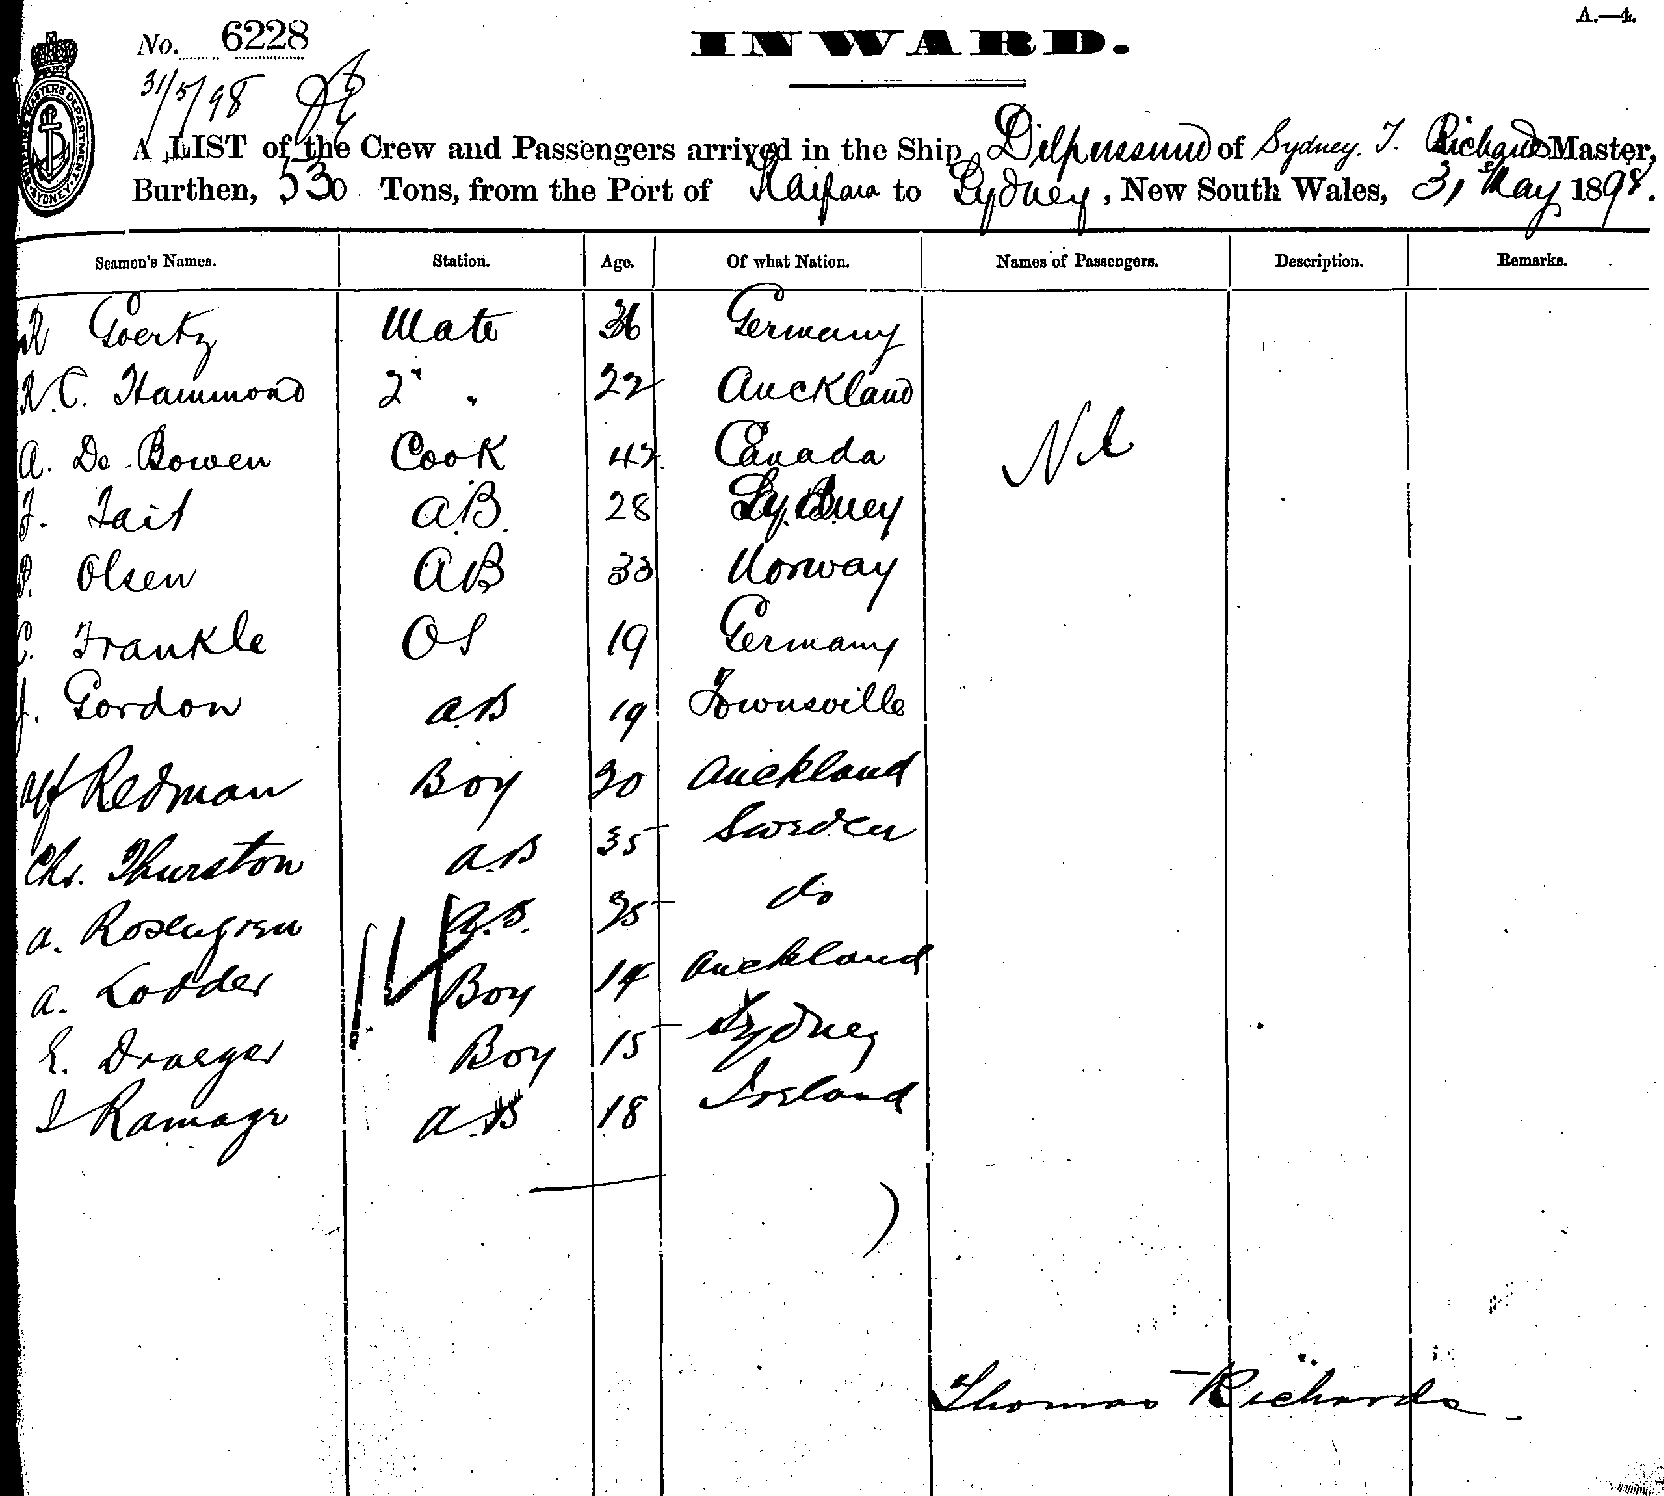 A.—4.
No. 6228
INWARD.
31/5/98
A LIST of the Crew and Passengers arrived in the Ship of Sydney. T. Richards Master,
Burthen, 530 Tons, from the Port of Kaipara to Sydney, New South Wales, 31 May 1898.
Seamen's Names. Station. Age. Of what Nation. Names of Passengers. Description. Remarks.
R Goertz Mate 36 Germany
R. C. Hammond 2" " 22 Auckland
A. De Bowen Cook 42 Canada
Nil
J. Tait A.B. 28 Sydney
Olsen AB 33 Norway
C. Frankle OS 19 Germany
J. Gordon A.B 19 Townsville
Alf Redman Boy 20 Auckland
Chr. Thurston A.B 35 Sweden
A. Rosengren A.B. 25 do
14
A. Lodder Boy 14 Auckland
E. Draeger Boy 15 Sydney
Ramage A.B 18 Ireland
Thomas Richards